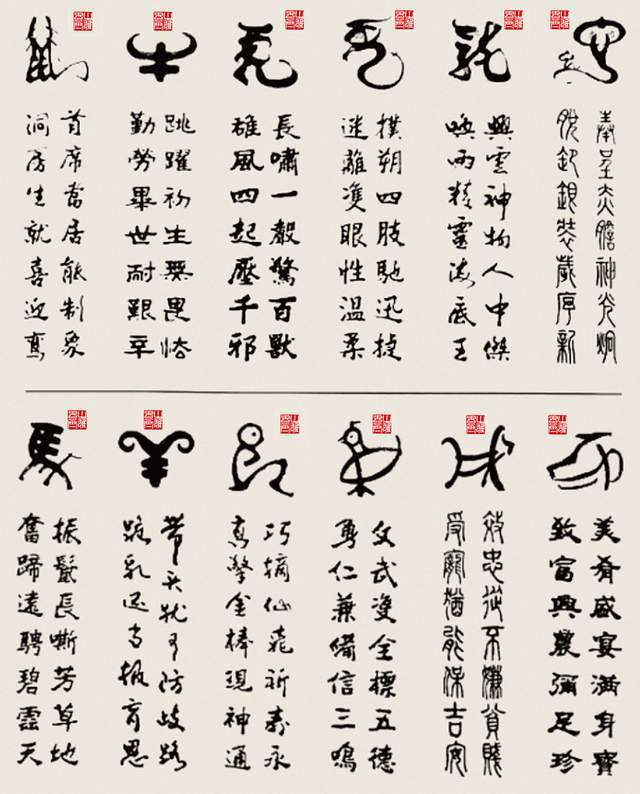 鼠
首席當居能制象
洞房生就喜迎鸞
牛
跳躍初生無畏
勤勞畢世耐艱辛
虎
長嘯一聲驚百獸
雄風四起壓千邪
兔
撲朔四肢馳迅捷
迷離雙眼性溫柔
龍
興雲神物人中傑
喚雨精靈海底王
奉呈炎膽神光炯
脫卸銀裝歲序新
馬
振鬣長嘶芳草地
奮蹄遠騁碧雲天
羊
帶头犹可防歧路
跪乳还當報育恩
巧摘仙桃祈壽永
高擎金棒現神通
文武雙全標五德
勇仁兼備信三鳴
效忠從不嫌貧賤
受寵猶能保吉安
美肴盛宴滿身寶
致富興農彌足珍